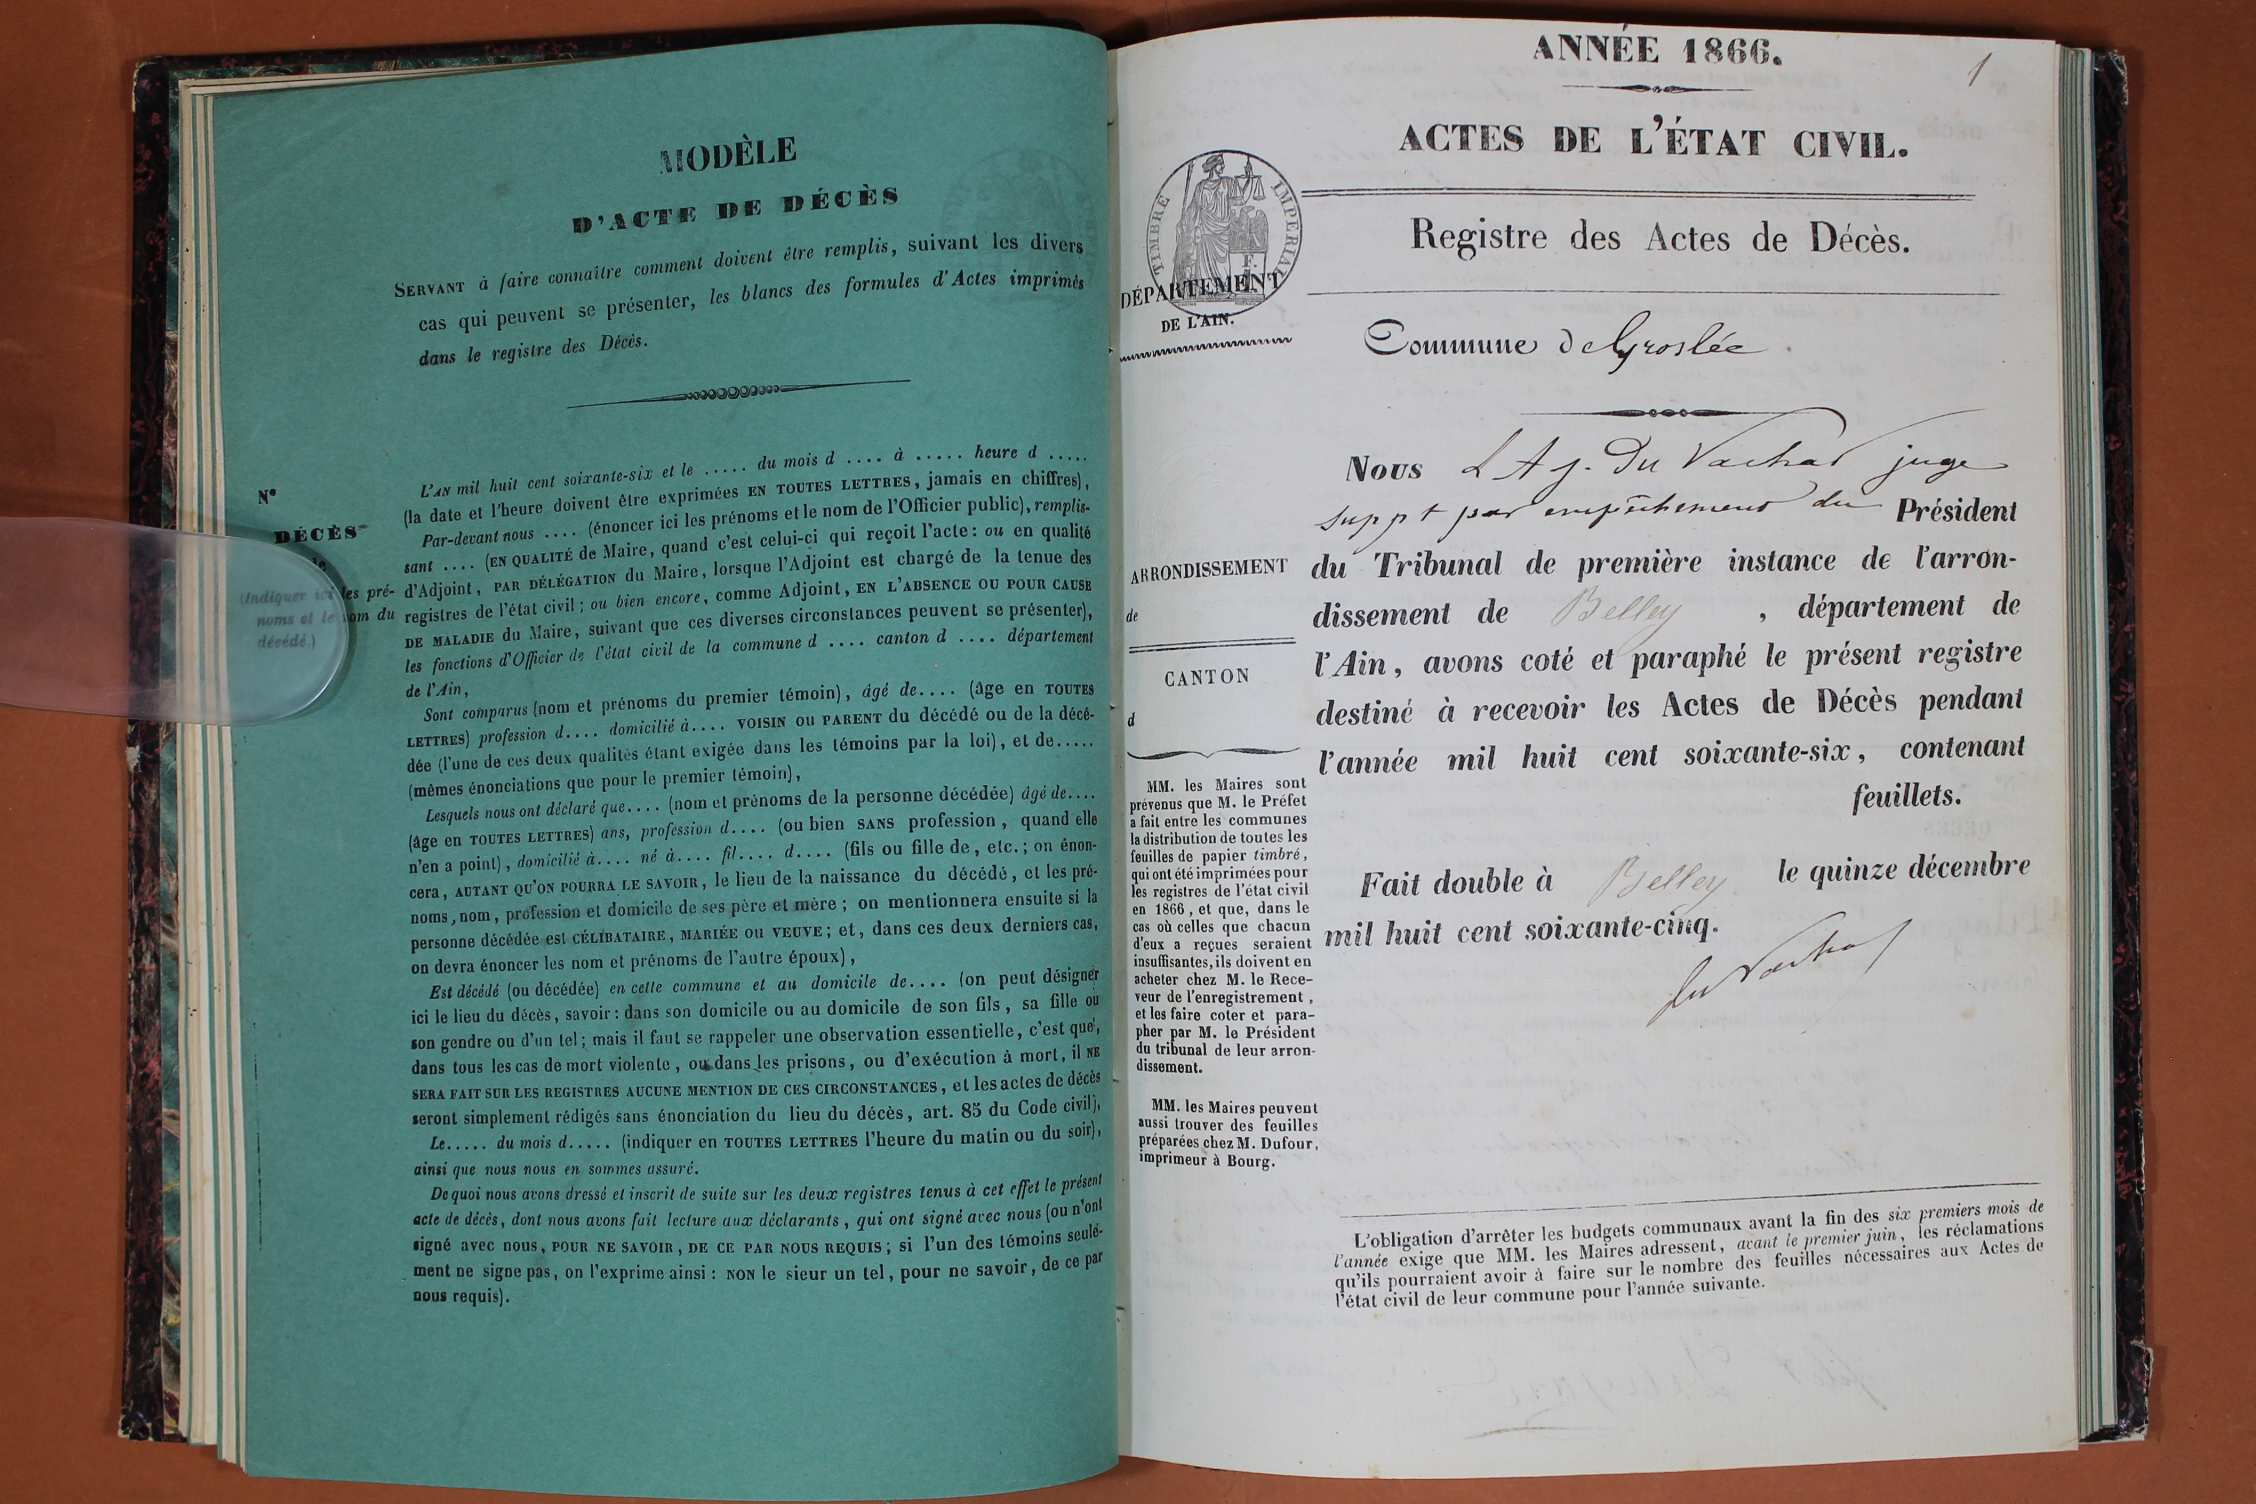 MODÈLE
D'ACTE DE DÉCÈS
SERVANT à faire connaître comment doivent être remplis, suivant les divers
cas qui peuvent se présenter, les blancs des formules d'Actes imprimés
dans le registre des Décès.
N°
DÉCÈS
de
(Indiquer ici les pré-
noms et le nom du
décédé.)
L'AN mil huit cent soixante-six et le ..... du mois d .... à ..... heure d .....
(la date et l'heure doivent être exprimées EN TOUTES LETTRES, jamais en chiffres),
Par-devant nous .... (énoncer ici les prénoms et le nom de l'Officier public), remplis-
sant .... (EN QUALITÉ de Maire, quand c'est celui-ci qui reçoit l'acte: ou en qualité
d'Adjoint, PAR DÉLÉGATION du Maire, lorsque l'Adjoint est chargé de la tenue des
registres de l'état civil; ou bien encore, comme Adjoint, EN L'ABSENCE OU POUR CAUSE
DE MALADIE du Maire, suivant que ces diverses circonstances peuvent se présenter),
les fonctions d'Officier de l'état civil de la commune d .... canton d .... département
de l'Ain,
Sont comparus (nom et prénoms du premier témoin), âgé de.... (âge en TOUTES
LETTRES) profession d.... domicilié à.... VOISIN OU PARENT du décédé ou de la décé-
dée (l'une de ces deux qualités étant exigée dans les témoins par la loi), et de.....
(mêmes énonciations que pour le premier témoin),
Lesquels nous ont déclaré que.... (nom et prénoms de la personne décédée) âgé de....
(âge en TOUTES LETTRES) ans, profession d.... (ou bien SANS profession, quand elle
n'en a point), domicilié à.... né à.... fil.... d.... (fils ou fille de, etc.; on énon-
cera, AUTANT QU'ON POURRA LE SAVOIR, le lieu de la naissance du décédé, et les pré-
noms, nom, profession et domicile de ses père et mère; on mentionnera ensuite si la
personne décédée est CÉLIBATAIRE, MARIÉE OU VEUVE; et, dans ces deux derniers cas,
on devra énoncer les nom et prénoms de l'autre époux),
Est décédé (ou décédée) en cette commune et au domicile de.... (on peut désigner
ici le lieu du décès, savoir: dans son domicile ou au domicile de son fils, sa fille ou
son gendre ou d'un tel; mais il faut se rappeler une observation essentielle, c'est que,
dans tous les cas de mort violente, ou dans les prisons, ou d'exécution à mort, il NE
SERA FAIT SUR LES REGISTRES AUCUNE MENTION DE CES CIRCONSTANCES, et les actes de décès
seront simplement rédigés sans énonciation du lieu du décès, art. 85 du Code civil),
Le..... du mois d..... (indiquer en TOUTES LETTRES l'heure du matin ou du soir),
ainsi que nous nous en sommes assuré.
De quoi nous avons dressé et inscrit de suite sur les deux registres tenus à cet effet le présent
acte de décès, dont nous avons fait lecture aux déclarants, qui ont signé avec nous (ou n'ont
signé avec nous, POUR NE SAVOIR, DE CE PAR NOUS REQUIS; si l'un des témoins seule-
ment ne signe pas, on l'exprime ainsi: NON le sieur un tel, pour ne savoir, de ce par
nous requis).
ANNÉE 1866.
1
ACTES DE L'ÉTAT CIVIL.
TIMBRE IMPÉRIAL
F.
DÉPARTEMENT
DE L'AIN.
Registre des Actes de Décès.
Commune de Groslée
Nous L A J. Du Vachat juge
suppt par empêchement du Président
du Tribunal de première instance de l'arron-
dissement de Belley , département de
l'Ain, avons coté et paraphé le présent registre
destiné à recevoir les Actes de Décès pendant
l'année mil huit cent soixante-six, contenant
feuillets.
Fait double à Belley le quinze décembre
mil huit cent soixante-cinq.
du Vachat
ARRONDISSEMENT
de
CANTON
d
MM. les Maires sont
prévenus que M. le Préfet
a fait entre les communes
la distribution de toutes les
feuilles de papier timbré,
qui ont été imprimées pour
les registres de l'état civil
en 1866, et que, dans le
cas où celles que chacun
d'eux a reçues seraient
insuffisantes, ils doivent en
acheter chez M. le Rece-
veur de l'enregistrement,
et les faire coter et para-
pher par M. le Président
du tribunal de leur arron-
dissement.
MM. les Maires peuvent
aussi trouver des feuilles
préparées chez M. Dufour,
imprimeur à Bourg.
L'obligation d'arrêter les budgets communaux avant la fin des six premiers mois de
l'année exige que MM. les Maires adressent, avant le premier juin, les réclamations
qu'ils pourraient avoir à faire sur le nombre des feuilles nécessaires aux Actes de
l'état civil de leur commune pour l'année suivante.